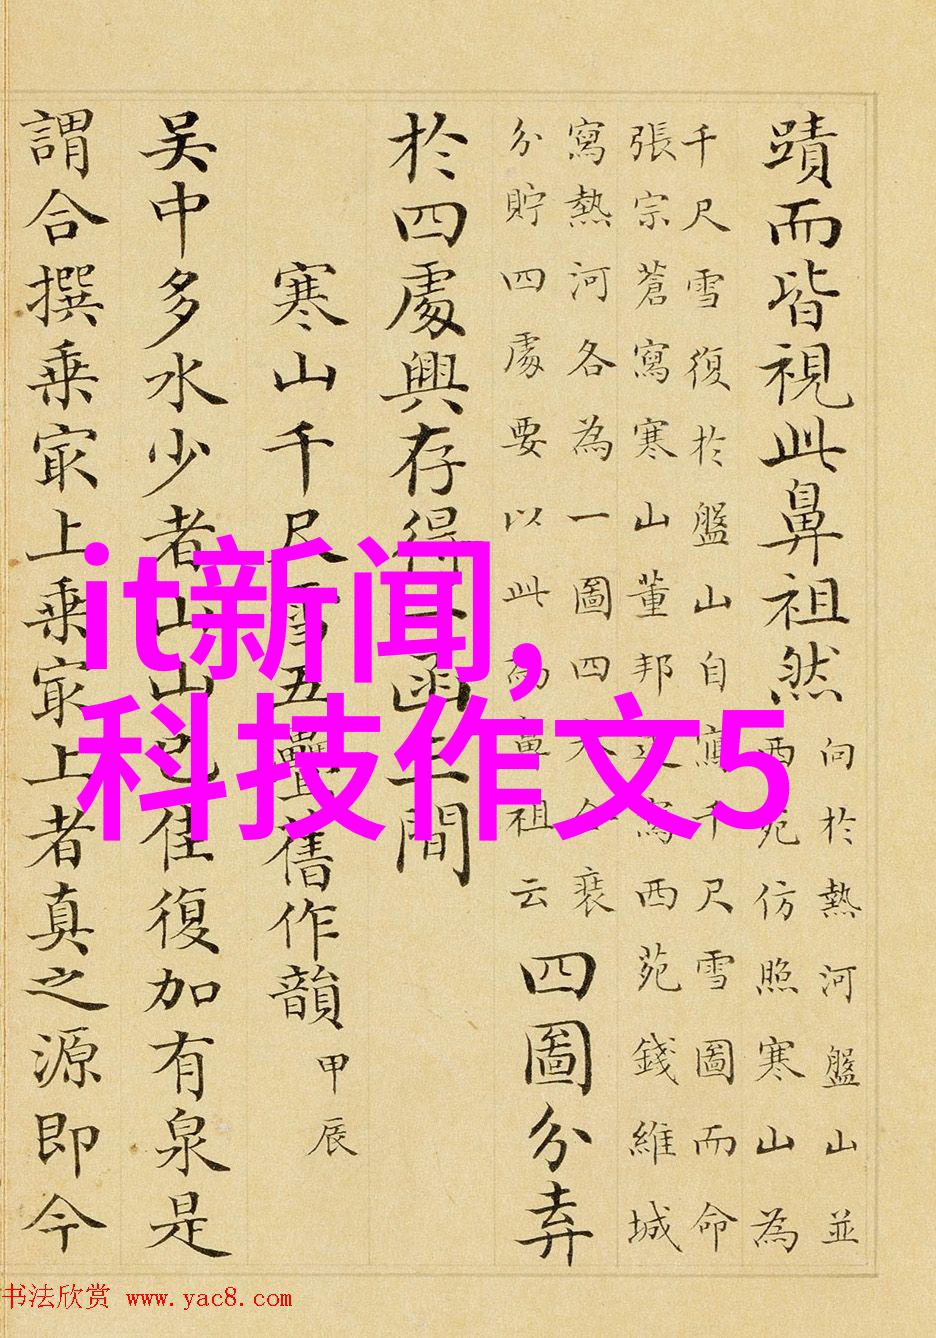 蹟而皆視此鼻祖然
向於熱河盤山並
西苑仿照寒山為
千尺雪復於盤山自寫千尺雪圖而命
張宗蒼寫寒山董邦達寫西苑錢維城
寫熱河各為一圖四合裝
分貯四處要以此為鼻祖云
四圖分弆
於四處興存得一函之間
寒山千尺雪五疊舊作韻 甲辰
吳中多水少者山山已佳復加有泉是
謂合撰乗冣上乗冣上者真之源即今
it新闻,
科技作文5
书法欣赏 www.yac8.com